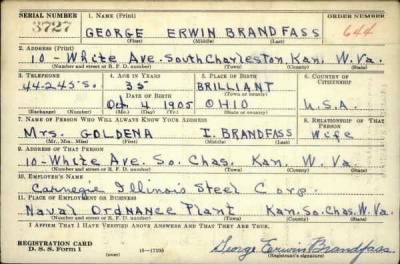 SERIAL NUMBER 1. NAME (Print) ORDER NUMBER
3727 GEORGE ERWIN BRANDFASS 644
(First) (Middle) (Last)
2. ADDRESS (Print)
10 - White Ave. South Charleston Kan. W. Va.
(Number and street or R. F. D. number) (Town) (County) (State)
3. TELEPHONE 4. AGE IN YEARS 5. PLACE OF BIRTH 6. COUNTRY OF CITIZENSHIP
44-243 So. 35 BRILLIANT
DATE OF BIRTH (Town or county)
Oct 4 1905 OHIO U.S.A.
(Exchange) (Number) (Mo.) (Day) (Yr.) (State or country)
7. NAME OF PERSON WHO WILL ALWAYS KNOW YOUR ADDRESS 8. RELATIONSHIP OF THAT PERSON
Mrs. GOLDENA I. BRANDFASS Wife
(Mr., Mrs., Miss) (First) (Middle) (Last)
9. ADDRESS OF THAT PERSON
10 - White Ave. So. Chas. Kan. W. Va.
(Number and street or R. F. D. number) (Town) (County) (State)
10. EMPLOYER'S NAME
Carnegie Illinois Steel Corp.
11. PLACE OF EMPLOYMENT OR BUSINESS
Naval Ordnance Plant Kan. So. Chas. W. Va.
(Number and street or R. F. D. number) (Town) (County) (State)
I AFFIRM THAT I HAVE VERIFIED ABOVE ANSWERS AND THAT THEY ARE TRUE.
REGISTRATION CARD George Erwin Brandfass
D. S. S. Form 1 (over) (Registrant's signature)